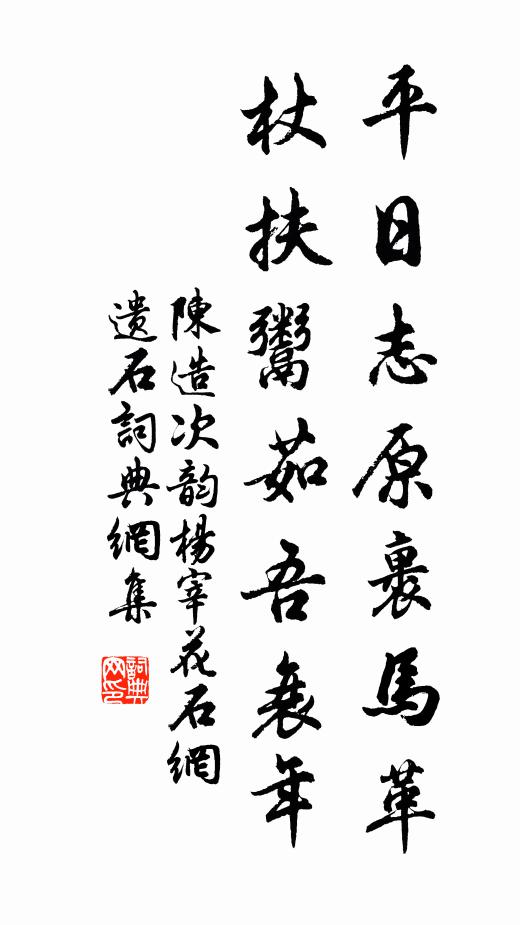 平日志原裹馬革
杖扶鬻茹吾衰年
陳造次韵楊宰花石網
遺石詞典網集
詞典網印